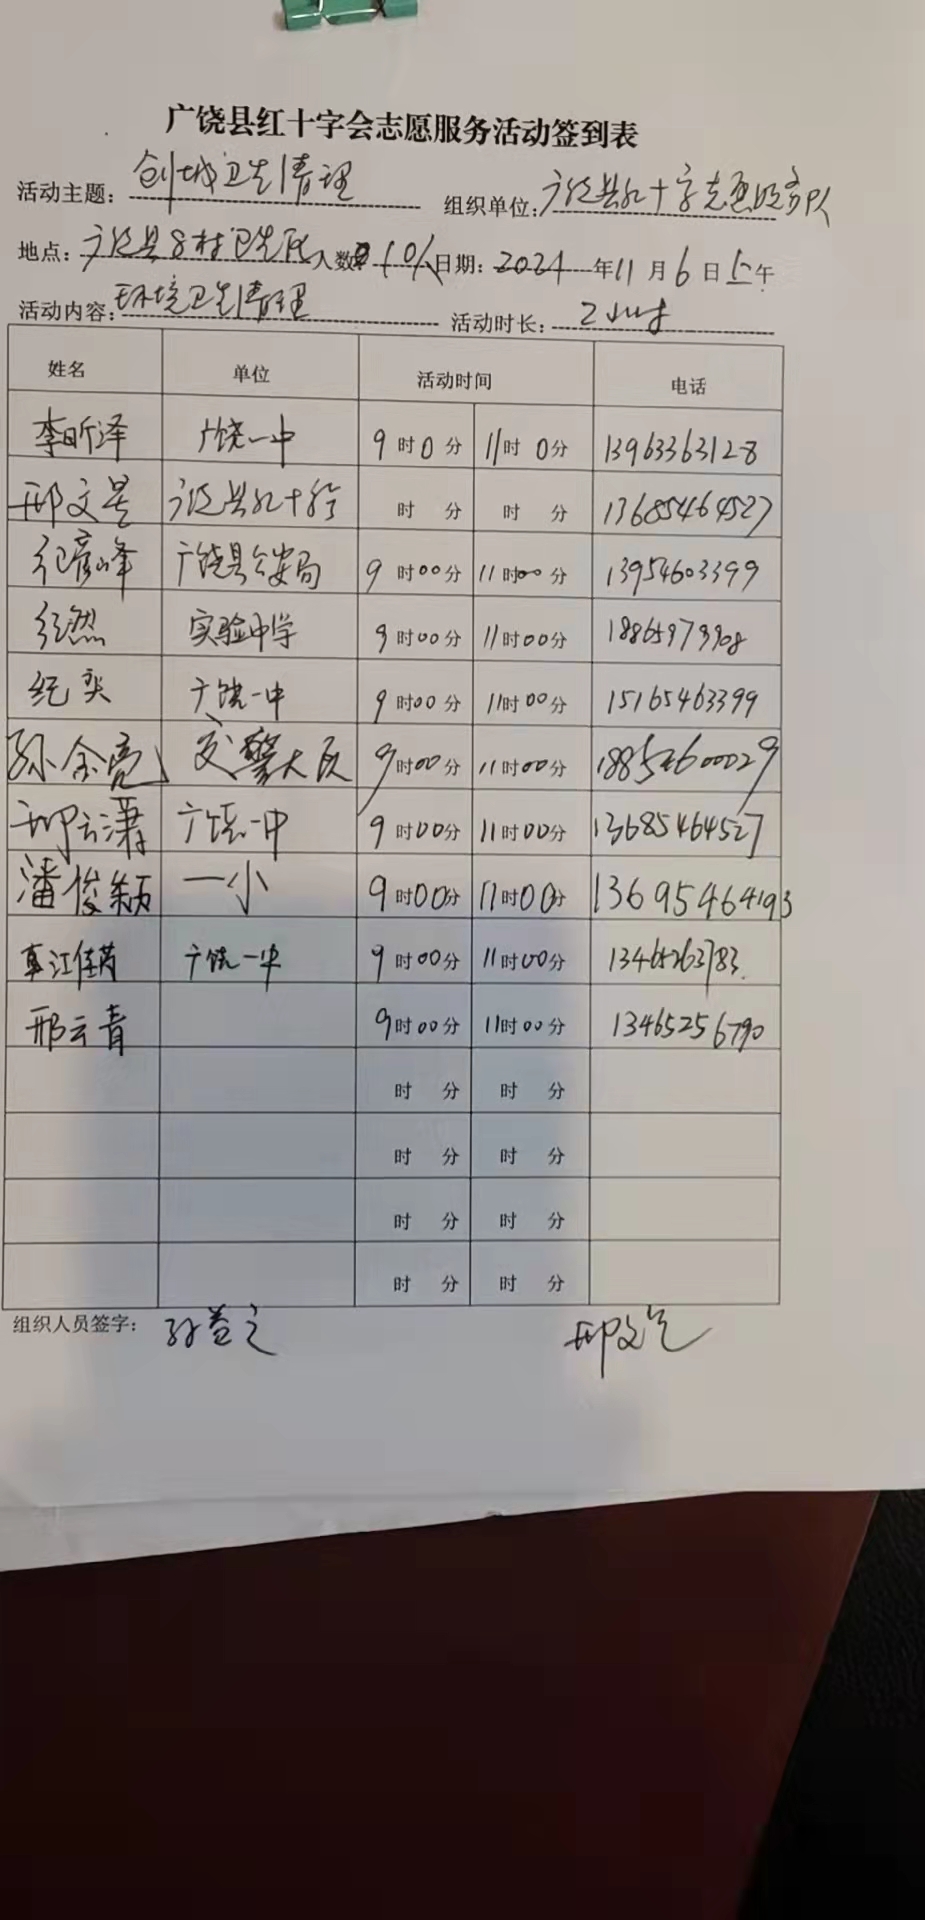 广饶县红十字会志愿服务活动签到表
活动主题: 创城卫生清理 组织单位: 广饶县红十字志愿服务队
地点: 广饶县乡村卫生 人数 10人 日期: 2021 年 11 月 6 日 上午
活动内容: 环境卫生清理 活动时长: 2小时
姓名 单位 活动时间 电话
李昕泽 广饶一中 9时0分 11时0分 13963363128
邢文 广饶县红十字会 时 分 时 分 13685464527
纪彦峰 广饶县公安局 9时00分 11时00分 13954603399
纪然 实验中学 9时00分 11时00分
纪奕 广饶一中 9时00分 11时00分 15165463399
孙金亮 交警大队 9时00分 11时00分 18854600029
邢云潇 广饶一中 9时00分 11时00分 13685464527
潘俊颖 一小 9时00分 11时00分 13695464193
江佳芮 广饶一中 9时00分 11时00分
邢云青 9时00分 11时00分 13465256790
时 分 时 分
时 分 时 分
时 分 时 分
时 分 时 分
组织人员签字: 孙益之 邢文